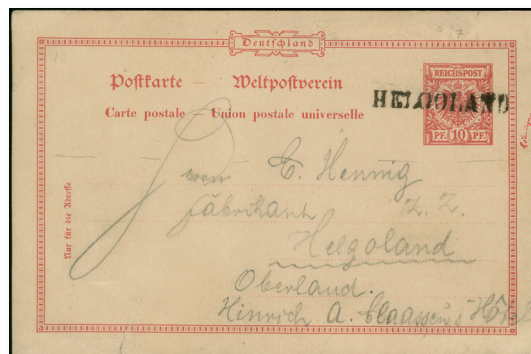 Deutschland
Postkarte — Weltpostverein
Carte postale — Union postale universelle
REICHSPOST
PF. 10 PF.
HELGOLAND
Nur für die Adresse
E. Hennig
Fabrikant z. Z.
Helgoland
Oberland.
Hinrich A. Claassen's Hôtel